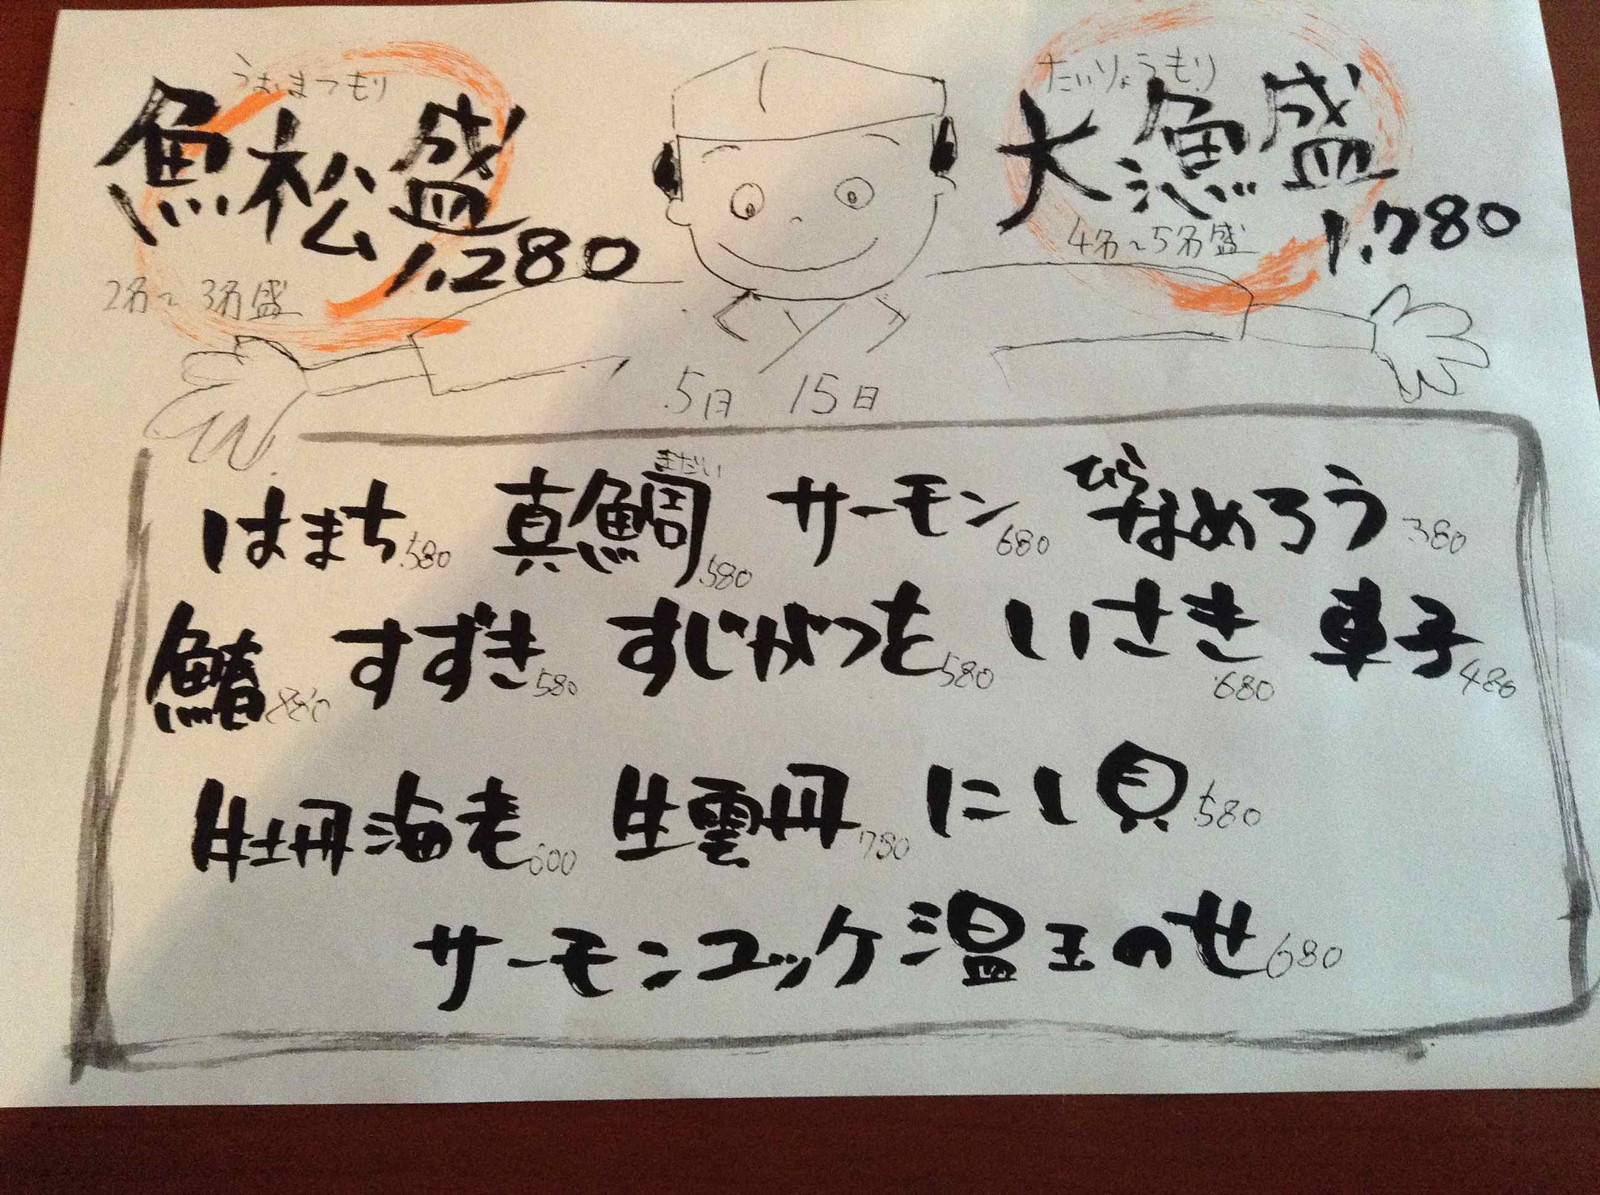 うおまつもり
魚松盛
1,280
2名~3名盛
たいりょうもり
大漁盛
1,780
4名~5名盛
5月 15日
はまち 580 真鯛 まだい 580 サーモン 680 びらなめろう 380
鰆 880 すずき 580 すじがつを 580 いさき 680 車子 480
牡丹海老 600 生雲丹 780 にし貝 580
サーモンユッケ温玉のせ 680